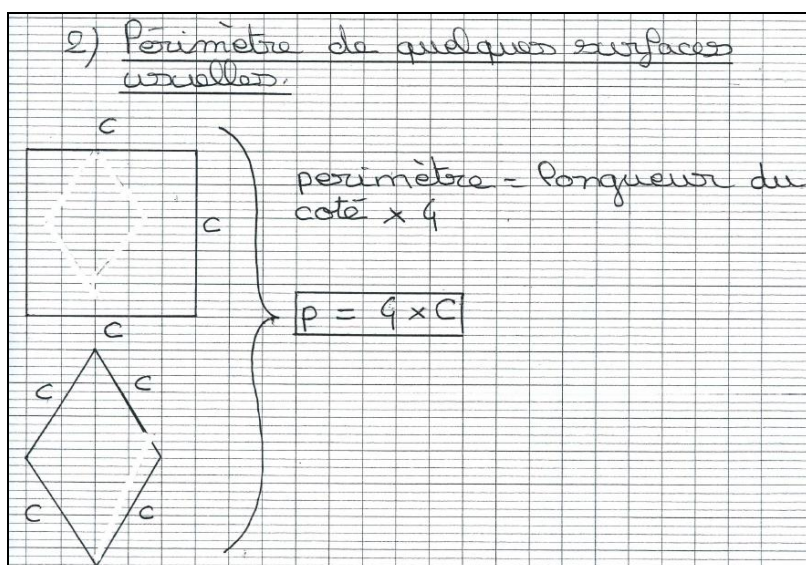 2) Périmètre de quelques surfaces
usuelles.
C
C
C
perimètre = longueur du
coté × 4
P = 4 × C
C
C
C
C